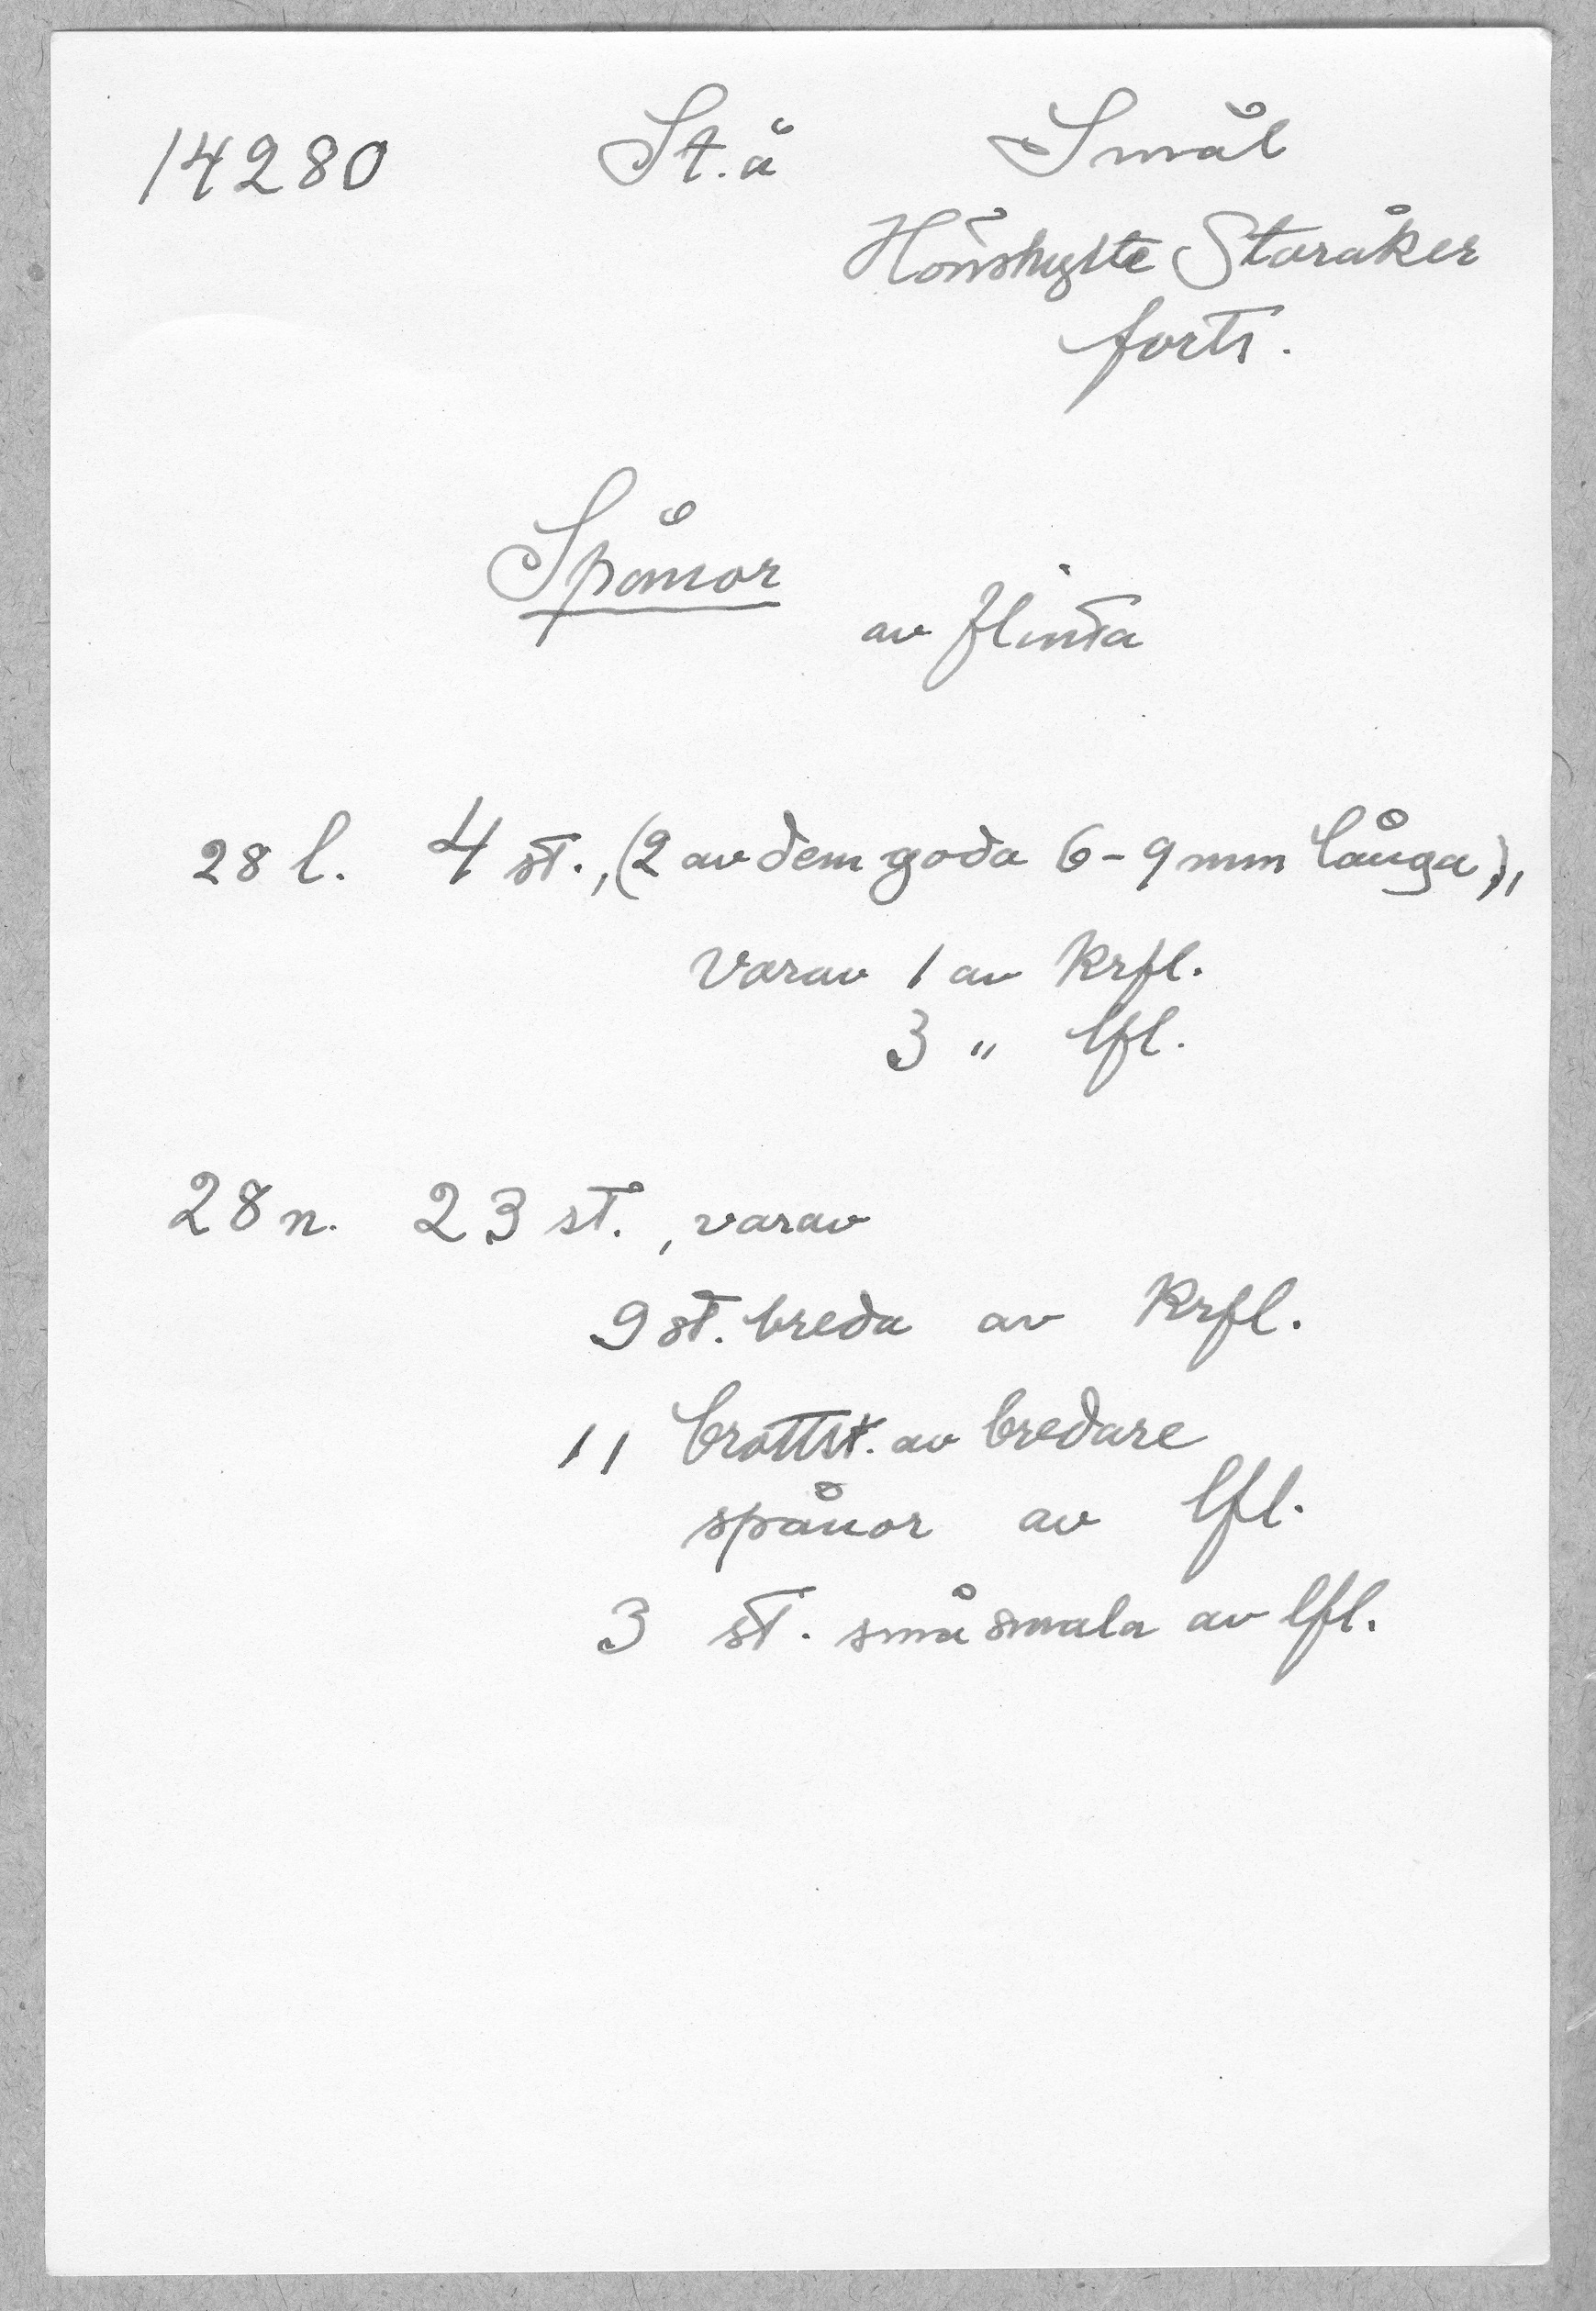 14280 St.å Smål
Hönshylte Storåker
forts.
Spånor
av flinta
28 l. 4 st., (2 av dem goda 6-9 mm långa),
varav 1 av Krfl.
3 " lfl.
28 n. 23 st., varav
9 st. breda av Krfl.
11 brottst. av bredare
spånor av lfl.
3 st. små smala av lfl.